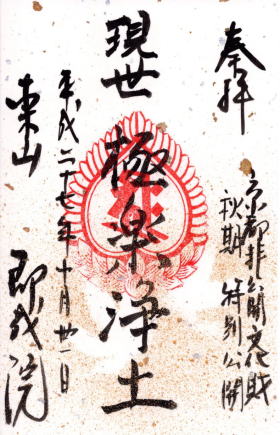 奉拝
京都非公開文化財
秋期 特別公開
現世 極楽浄土
平成二十七年十月廿一日
東山 即成院